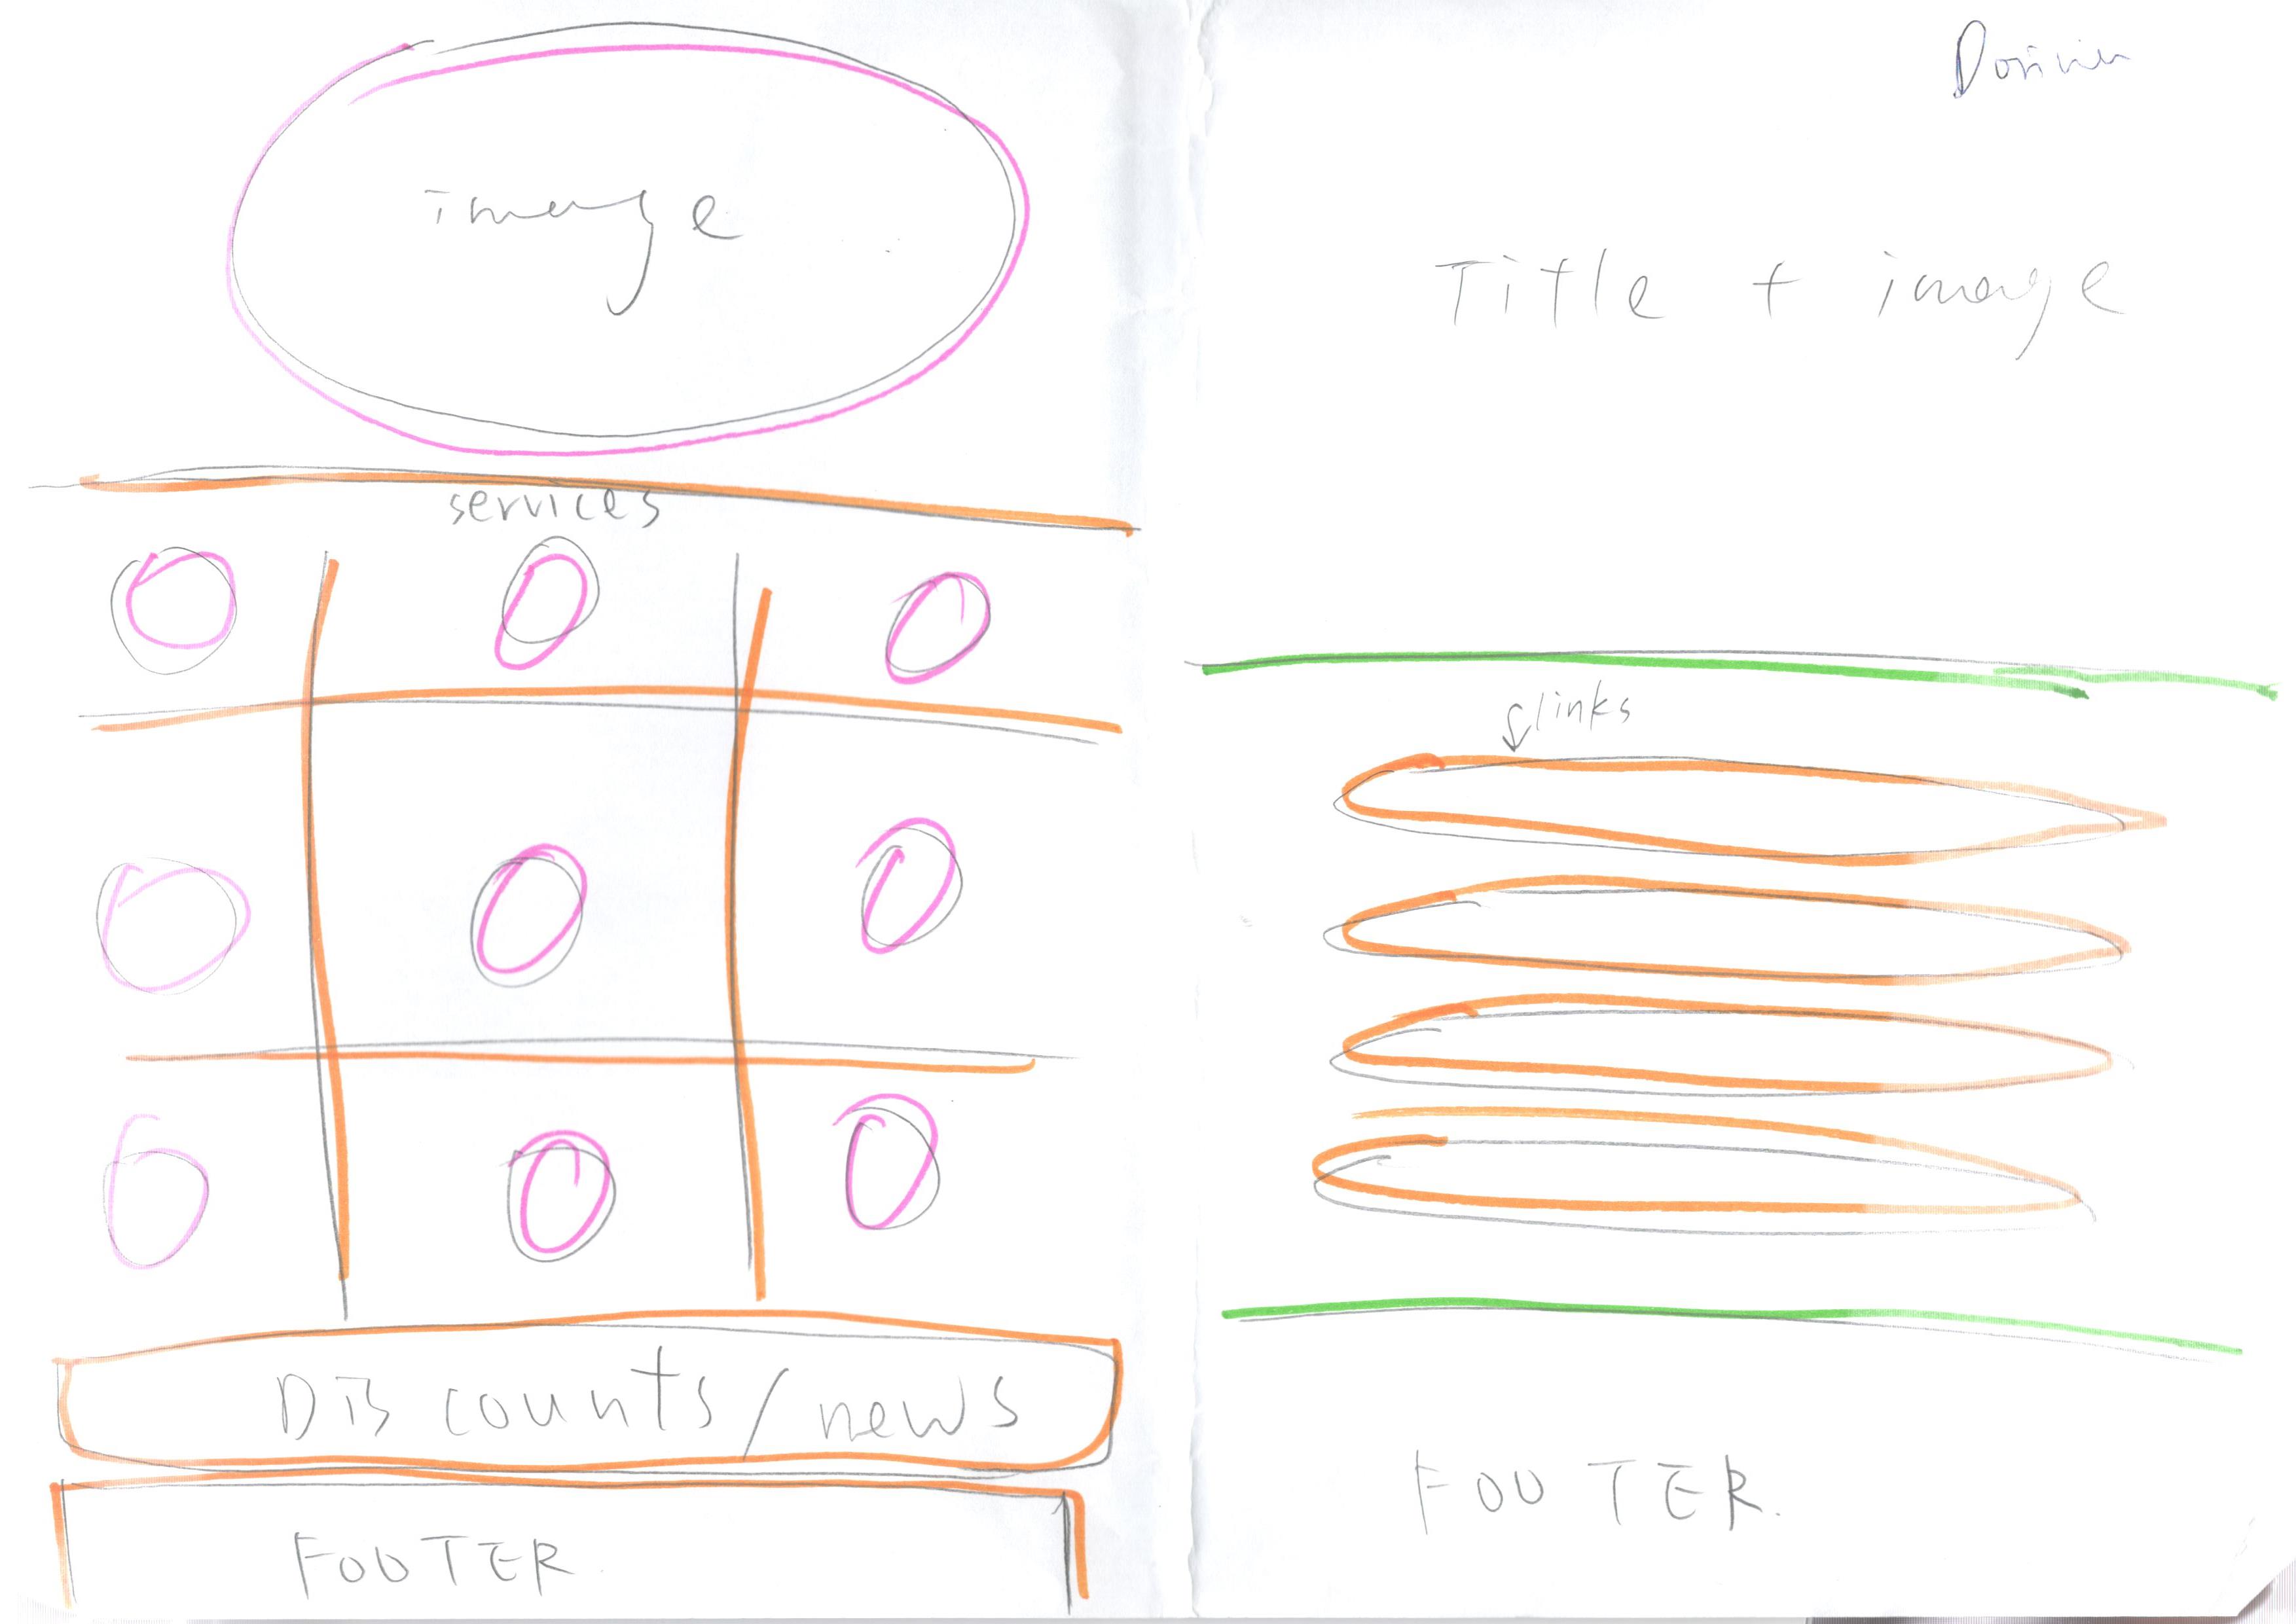 image
services
Discounts/news
FOOTER
Title + image
links
FOOTER.